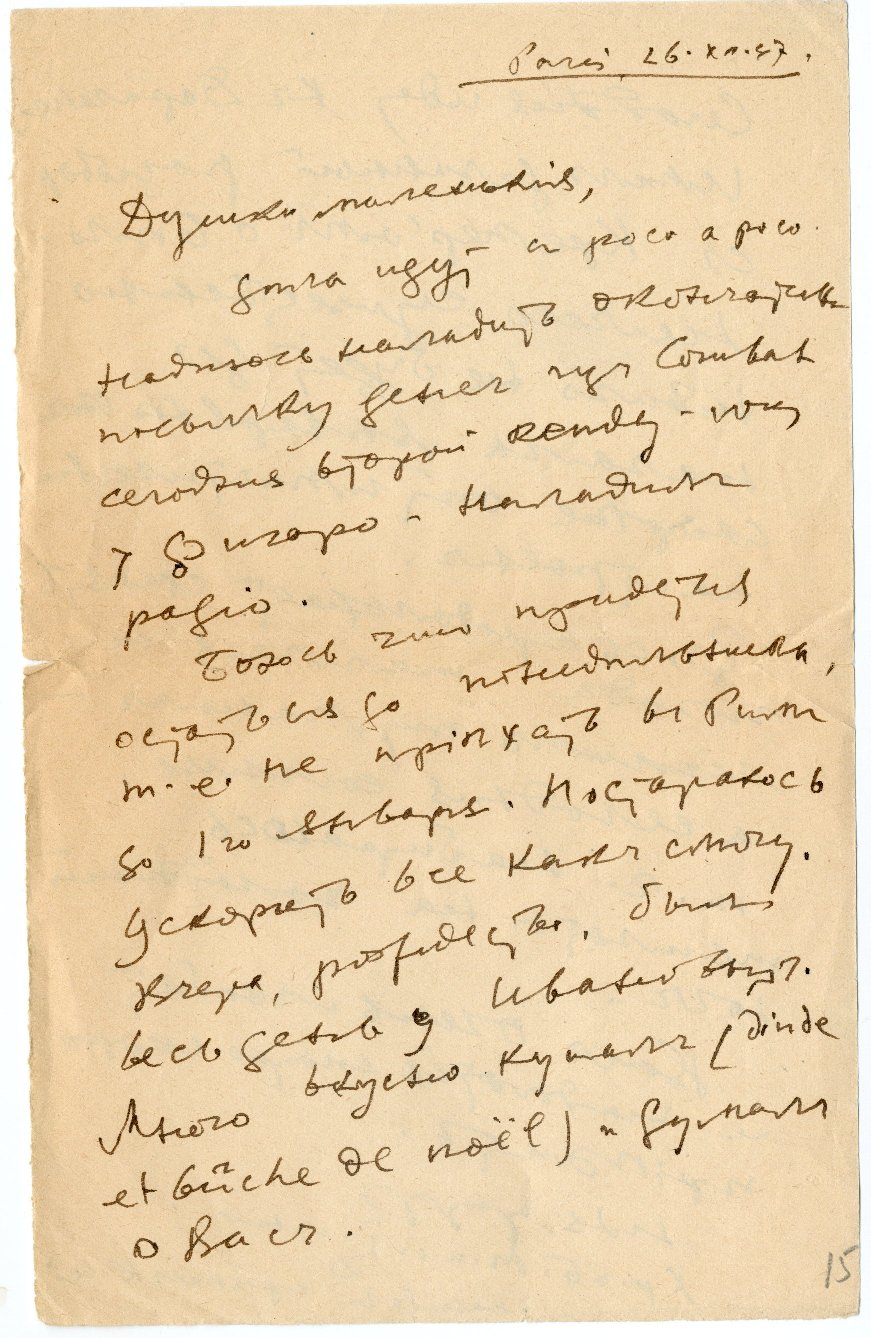 Paris, 26.XII.47.
Душки маленькія,
дѣла идут си poco a poco.
Надѣюсь наладить окончательно
посылку денег изъ Combat
сегодня второй рендэ-ву
у Фигаро - наладилъ
радіо.
Боюсь что придется
остаться до понедѣльника,
т.е. не пріѣхать въ Римъ
до 1го января. Постараюсь
ускорить все какъ смогу.
Вчера, рождество, былъ
весь день у Ивановыхъ.
Много вкусно кушалъ (dinde
et bûche de noël) и думалъ
о Васъ.
15